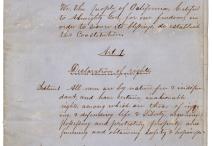 We the people of California, grateful
to Almighty God, for our freedom, in
order to secure its blessings, do establish
this Constitution
Art 1
Declaration of rights
All men are by nature free and indepen
dent, and have certain unalienable
rights, among which are those of enjoy
ing & defending life & liberty, acquiring
possessing and protecting property, and
pursuing and obtaining safety & happiness